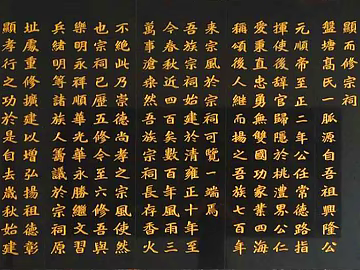 顯而修宗祠
盤塘高氏一脈源自吾祖興隆公
元順帝至正二年公任常德路指
揮使後辭官歸隱於桃澧界公仁
愛重直忠勇無雙國功家業四海
稱頌後人繼而揚之吾族七百年
來宗風於宗祠可覽一端焉
吾族宗祠始建於清雍正十年至
今春秋近四百矣數百年風雨三
萬事滄桑然吾族宗祠長存香火
不絕此乃崇德尚孝之宗風使然
也宗祠已歷五修今至六修吾與
樂明永祥華永勝繼文習
兵緒明等諸族人籌議於宗祠原
址處重修擴建以增弘揚祖德彰
顯孝行之功於是自去歲秋始建